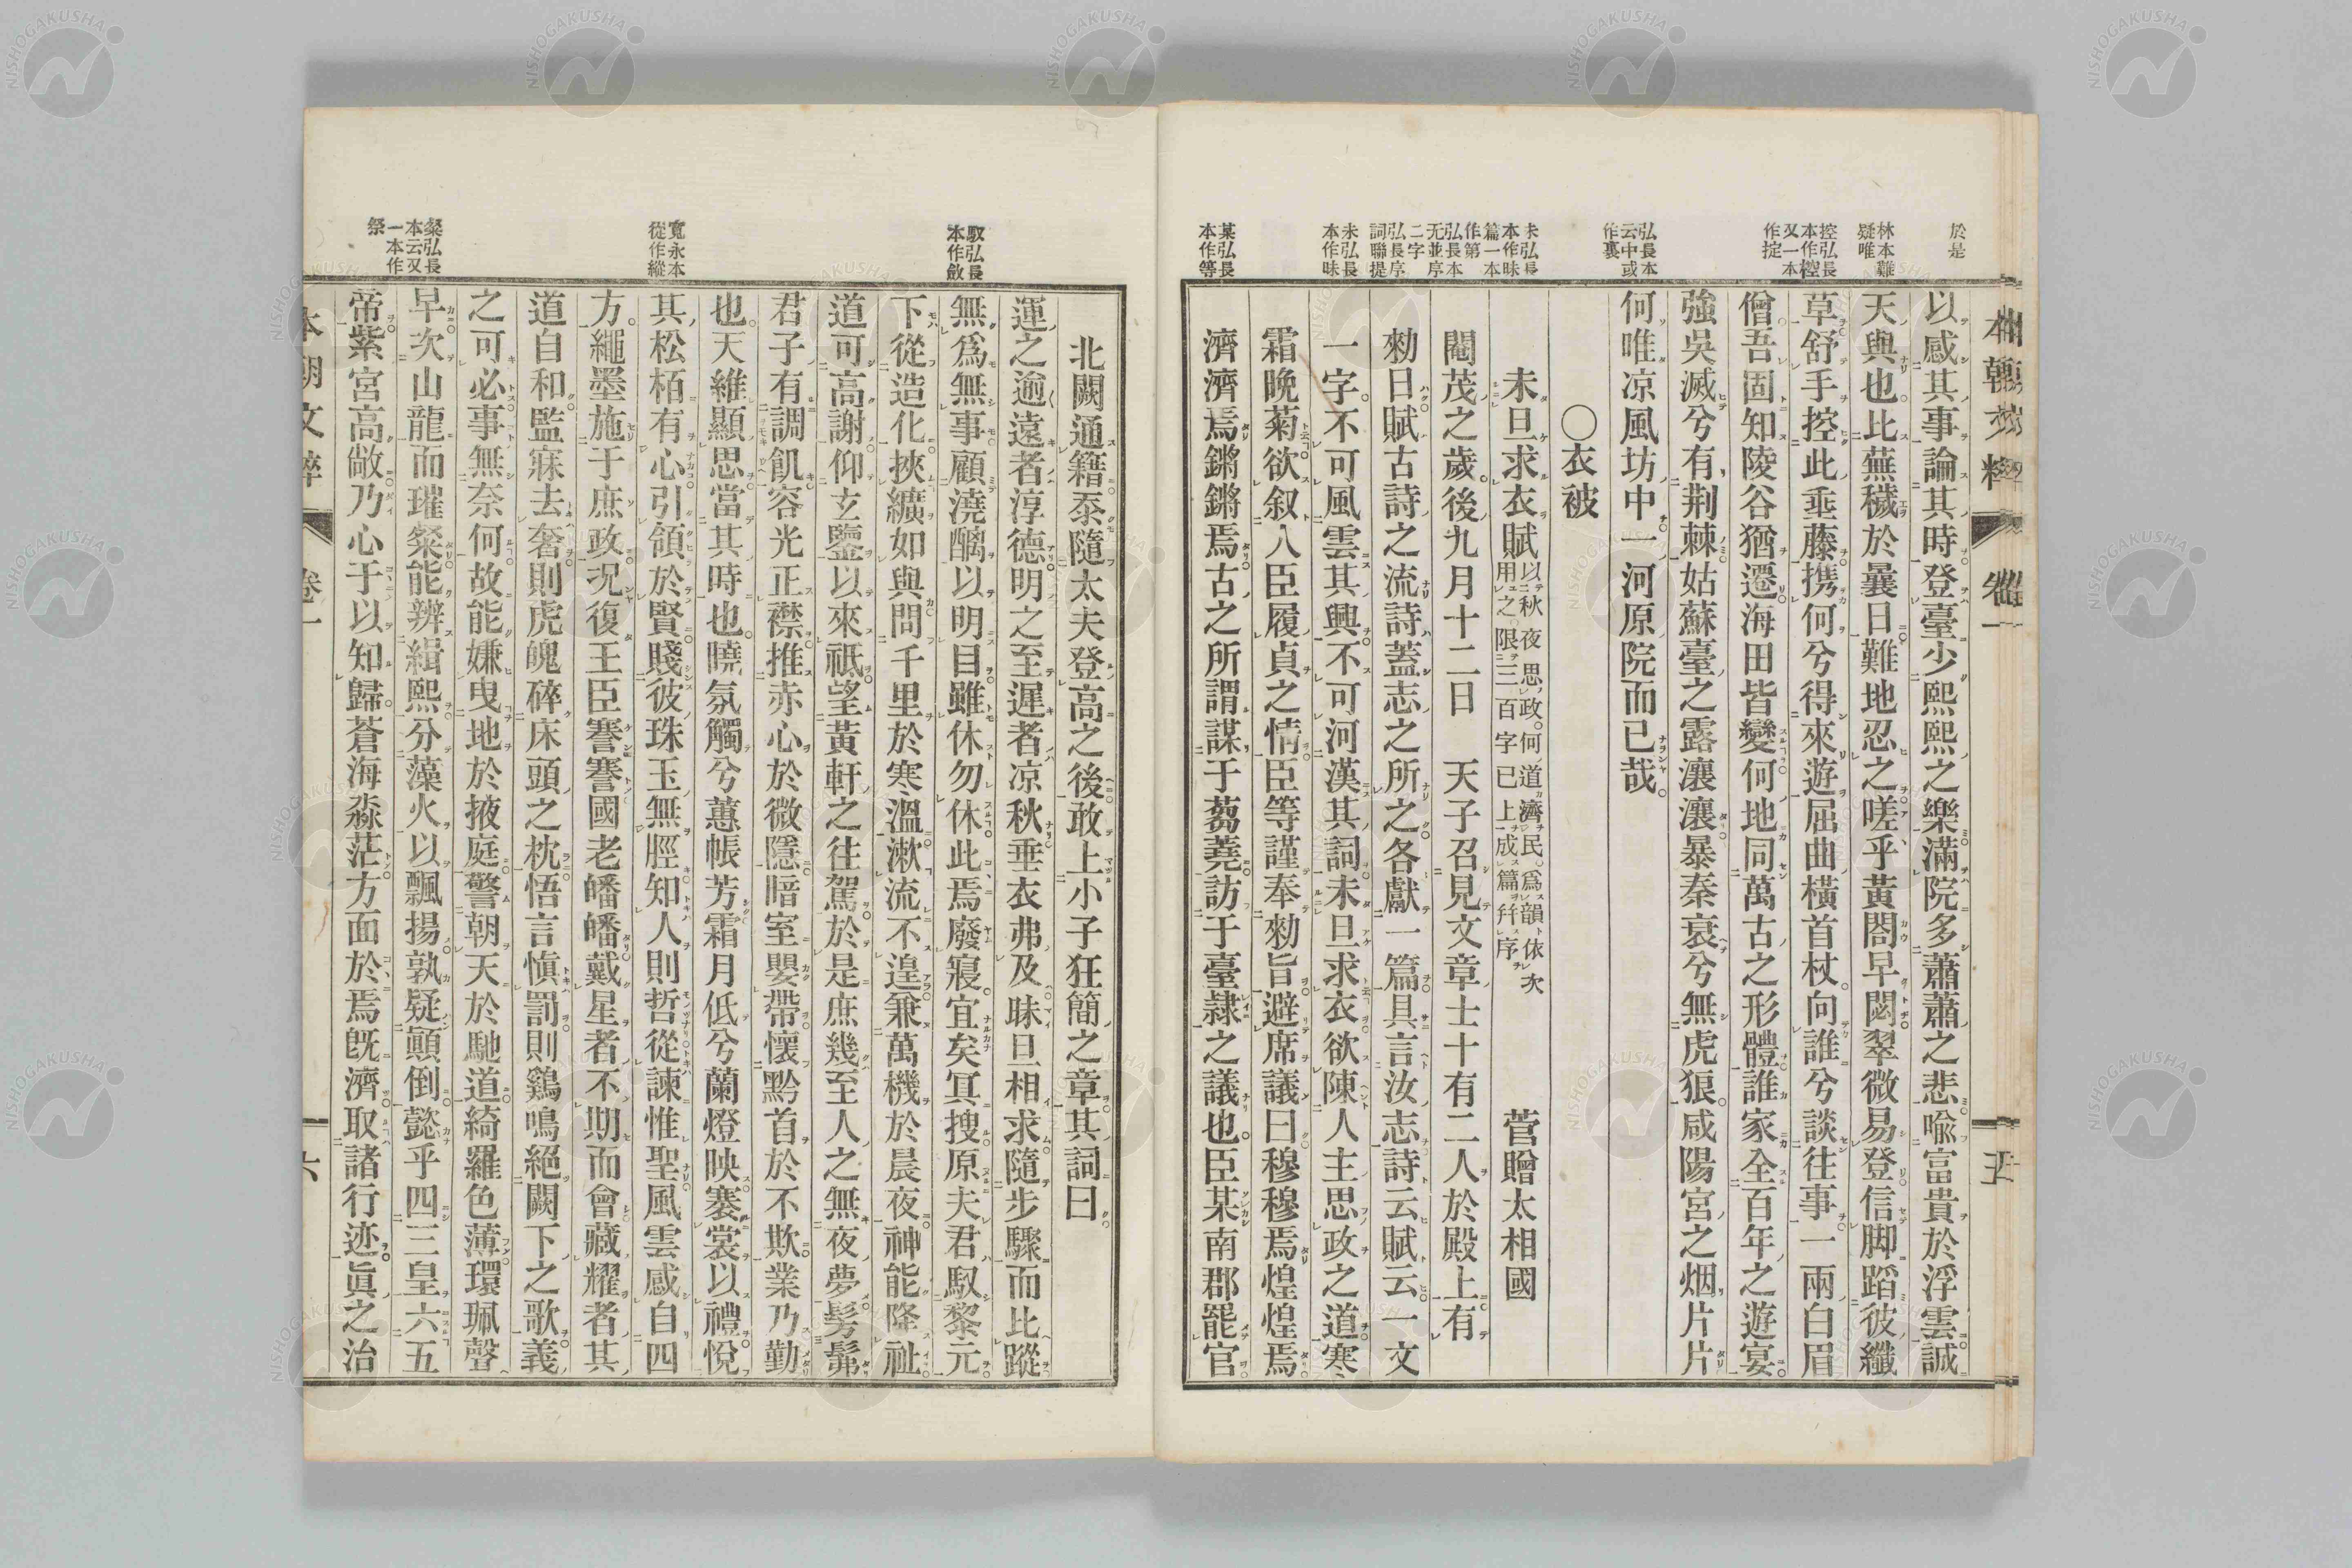 於是
林本難
疑唯
控弘長
本作椌
又一本
作掟
弘長本
云中或
作裏
未弘長
本作昧
篇一本
作第
弘長本
无並序
二字
弘長序
詞聯提
未弘長
本作昧
某弘長
本作等
本朝文粹 卷一 五
以感其事論其時登臺少熙熙之樂滿院多蕭蕭之悲喩富貴於浮雲誠
天與也比蕪穢於曩日難地忍之嗟乎黃閤早閟翠微易登信脚蹈彼纖
草舒手控此垂藤携何兮得來遊屈曲橫首杖向誰兮談往事一兩白眉
僧吾固知陵谷猶遷海田皆變何地同萬古之形體誰家全百年之遊宴
強吳滅兮有荆棘姑蘇臺之露瀼瀼暴秦衰兮無虎狼咸陽宮之烟片片
何唯凉風坊中一河原院而已哉
〇衣被
未旦求衣賦以秋夜思政何道濟民爲韻依次用之限三百字已上成篇幷序 菅贈太相國
閹茂之歲後九月十二日 天子召見文章士十有二人於殿上有
勑曰賦古詩之流詩蓋志之所之各獻一篇具言汝志詩云賦云一文
一字不可風雲其興不可河漢其詞未旦求衣欲陳人主思政之道寒
霜晚菊欲叙人臣履貞之情臣等謹奉勑旨避席議曰穆穆焉煌煌焉
濟濟焉鏘鏘焉古之所謂謀于蒭蕘訪于臺隷之議也臣某南郡罷官
馭弘長
本作斂
寬永本
從作縱
粲弘長
本云又
一本作
祭
北闕通籍忝隨太夫登高之後敢上小子狂簡之章其詞曰
運之逾遠者淳德明之至遲者凉秋垂衣弗及昧旦相求隨步驟而比蹤
無爲無事顧澆醨以明目雖休勿休此焉廢寢宜矣冥搜原夫君馭黎元
下從造化挾纊如與問千里於寒溫漱流不遑兼萬機於晨夜神能降祉
道可高謝仰玄鑒以來祗望黃軒之往駕於是庶幾至人之無夜夢髣髴
君子有調飢容光正襟推赤心於微隱暗室嬰帶懷黔首於不欺業乃勤
也天維顯思當其時也曉氛觸兮蕙帳芳霜月低兮蘭燈映褰裳以禮悅
其松栢有心引領於賢賤彼珠玉無脛知人則哲從諫惟聖風雲感自四
方繩墨施于庶政况復王臣謇謇國老皤皤戴星者不期而會藏耀者其
道自和監寐去奢則虎魄碎床頭之枕悟言愼罰則鷄鳴絕闕下之歌義
之可必事無奈何故能嫌曳地於掖庭警朝天於馳道綺羅色薄環珮聲
早次山龍而璀粲能辨緝熙分藻火以飄揚孰疑顚倒懿乎四三皇六五
帝紫宮高敞乃心于以知歸蒼海淼茫方面於焉旣濟取諸行迹眞之治
本朝文粹 卷一 六